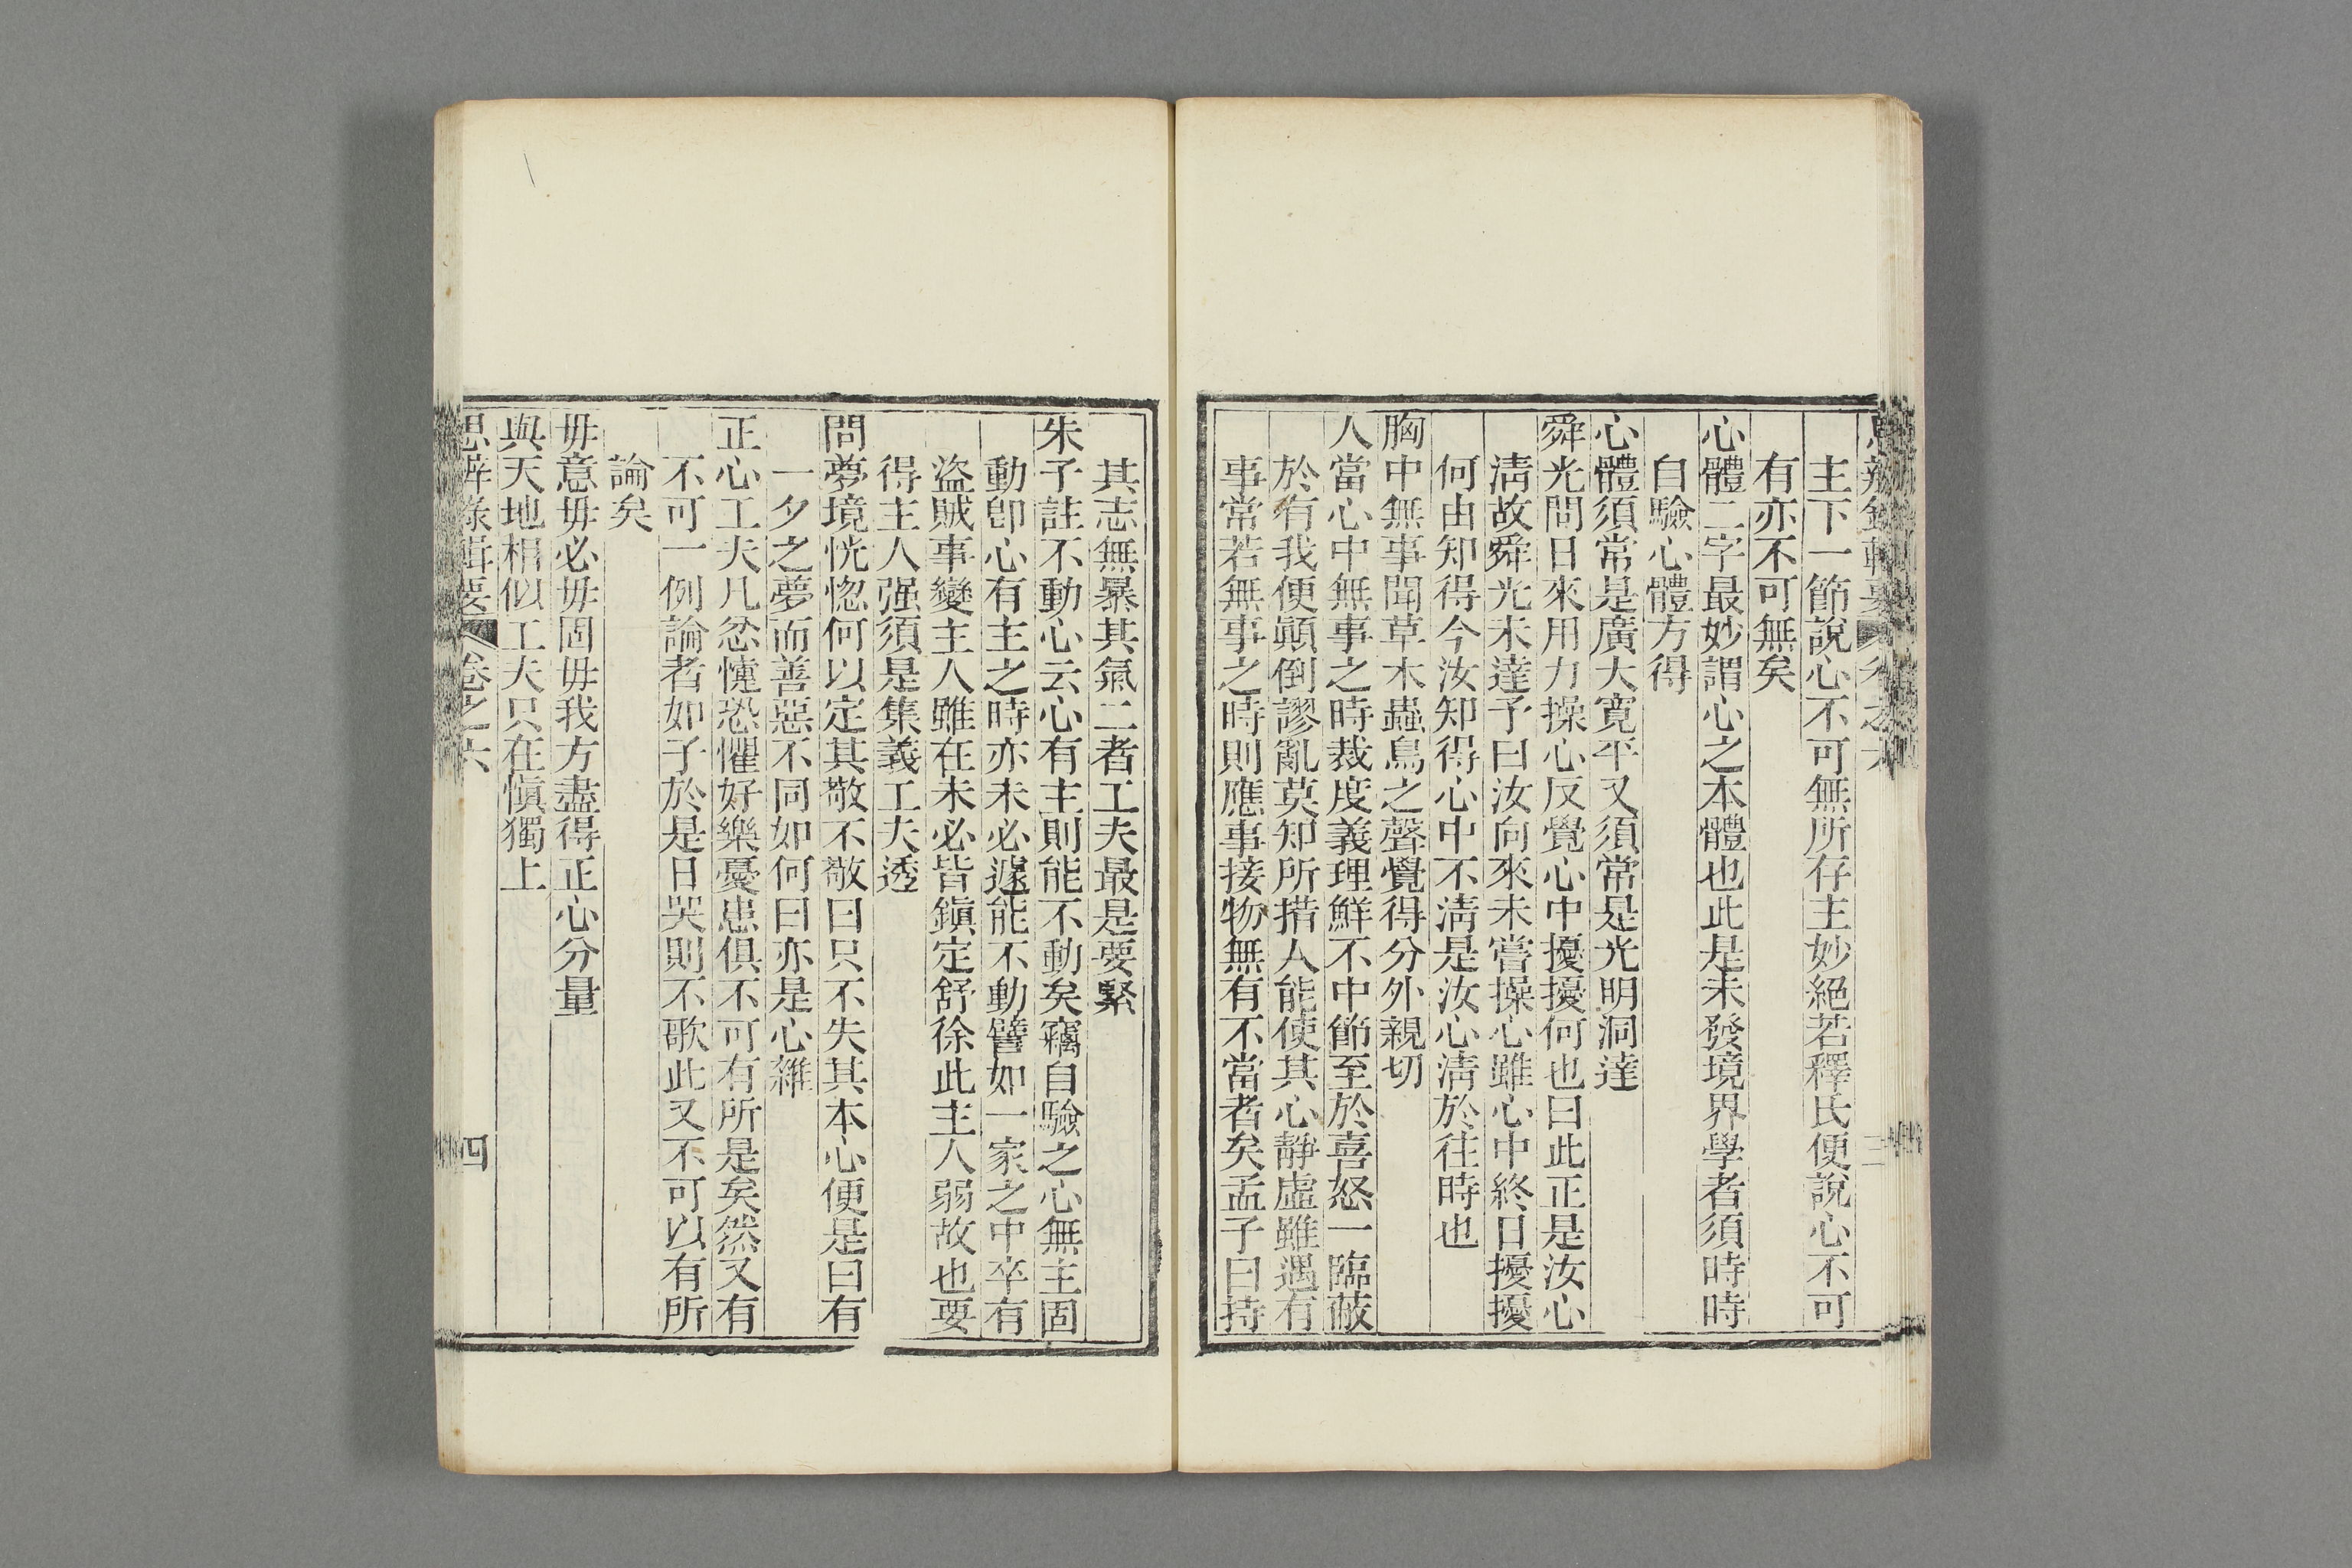 思辨錄輯要 卷之六 三
主下一節說心不可無所存主妙絕若釋氏便說心不可
有亦不可無矣
心體二字最妙謂心之本體也此是未發境界學者須時時
自驗心體方得
心體須常是廣大寬平又須常是光明洞達
舜光問日來用力操心反覺心中擾擾何也曰此正是汝心
淸故舜光未達予曰汝向來未嘗操心雖心中終日擾擾
何由知得今汝知得心中不淸是汝心淸於往時也
胸中無事聞草木蟲鳥之聲覺得分外親切
人當心中無事之時裁度義理鮮不中節至於喜怒一臨蔽
於有我便顚倒謬亂莫知所措人能使其心靜虛雖遇有
事常若無事之時則應事接物無有不當者矣孟子曰持
其志無暴其氣二者工夫最是要緊
朱子註不動心云心有主則能不動矣竊自驗之心無主固
動卽心有主之時亦未必遽能不動譬如一家之中卒有
盜賊事變主人雖在未必皆鎭定舒徐此主人弱故也要
得主人强須是集義工夫透
問夢境恍惚何以定其敬不敬曰只不失其本心便是曰有
一夕之夢而善惡不同如何曰亦是心雜
正心工夫凡忿懥恐懼好樂憂患俱不可有所是矣然又有
不可一例論者如子於是日哭則不歌此又不可以有所
論矣
毋意毋必毋固毋我方盡得正心分量
與天地相似工夫只在愼獨上
思辨錄輯要 卷之六 四